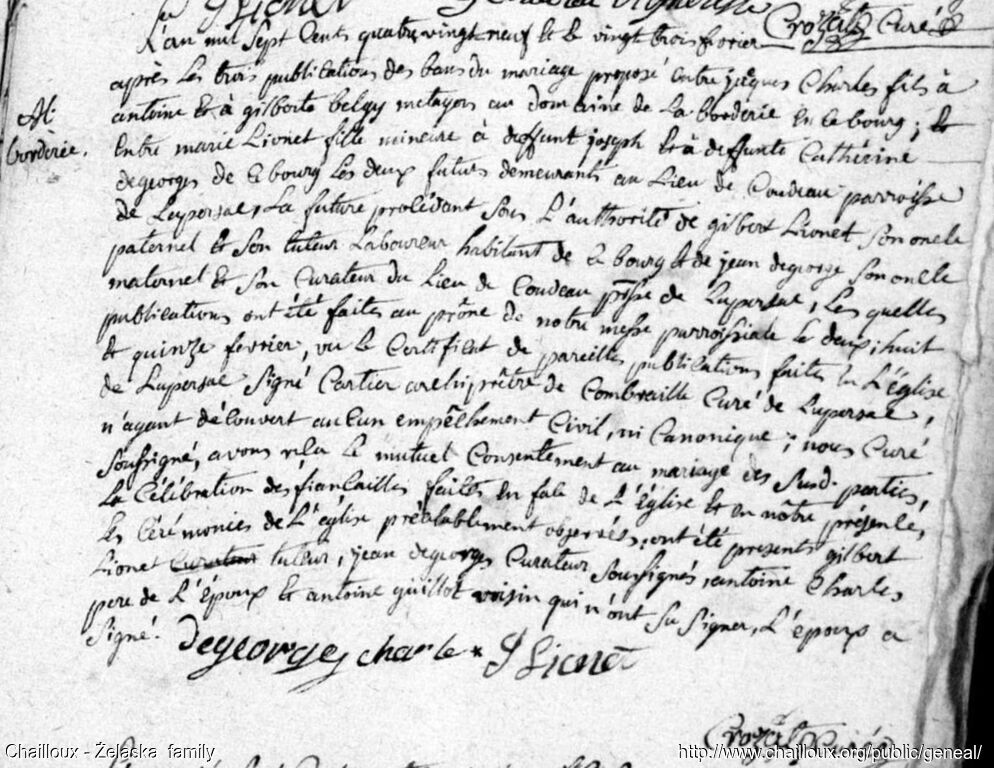 Crozat Curé
L'an mil sept Cents quatre vingt neuf Et le vingt trois fevrier
après Les trois publications des bans du mariage proposé Entre jacques Charles fils à
antoine Et à gilberte belgy metayers au domaine de La borderie En Ce bourg ; Et
Entre marie Lionet fille mineure à deffunt joseph Et à deffunte Cathérine
degeorges de Ce bourg Les deux futurs demeurants au Lieu de Coudeau parroisse
de Lupersac, La future procédant sous L'authorité de gilbert Lionet son oncle
paternel Et son tuteur Laboureur habitant de Ce bourg Et de jean degeorge son oncle
maternel Et son Curateur du Lieu de Coudeau psse de Lupersac, Les quelles
publications ont été faites au prône de notre messe parroissiale Le deux, huit
Et quinze fevrier, vu Le Certificat de pareilles publications faites En L'église
de Lupersac signé Cartier archiprêtre de Combraille Curé de Lupersac,
n'ayant découvert aucun empêchement Civil, ni Canonique ; nous Curé
soussigné, avons reçu Le mutuel Consentement au mariage des susd. parties,
La Célébration des fiancailles faites En face de L'église Et en nôtre présence,
Les Cérémonies de L'église préalablement observées, ont été presents gilbert
Lionet Curateur tuteur, jean degeorges Curateur soussignés, antoine Charles
pere de L'époux Et antoine guillot voisin qui n'ont su signer, L'époux a
signé.
degeorges charle Lionet
M.
borderie.
Crozat Curé
Chailloux - Želaska family
http://www.chailloux.org/public/geneal/